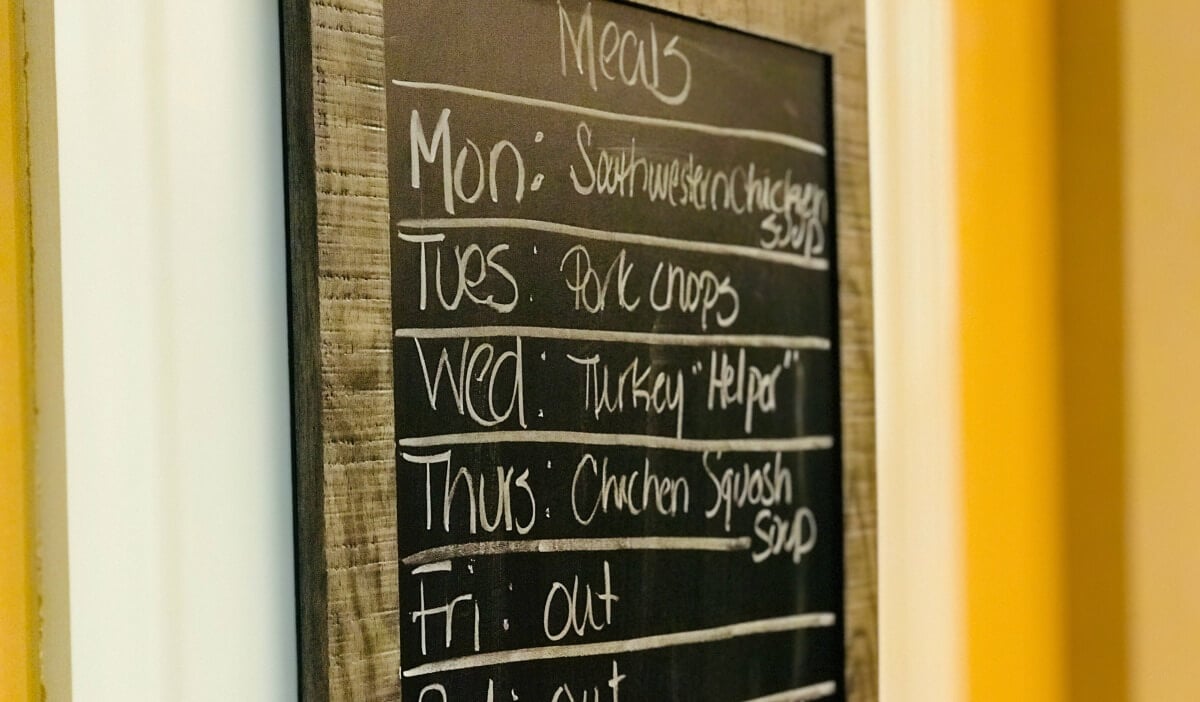 Meals
Mon: Southwestern Chicken
soup
Tues: Pork chops
Wed: Turkey "Helper"
Thurs: Chicken Squash
soup
Fri: out
out